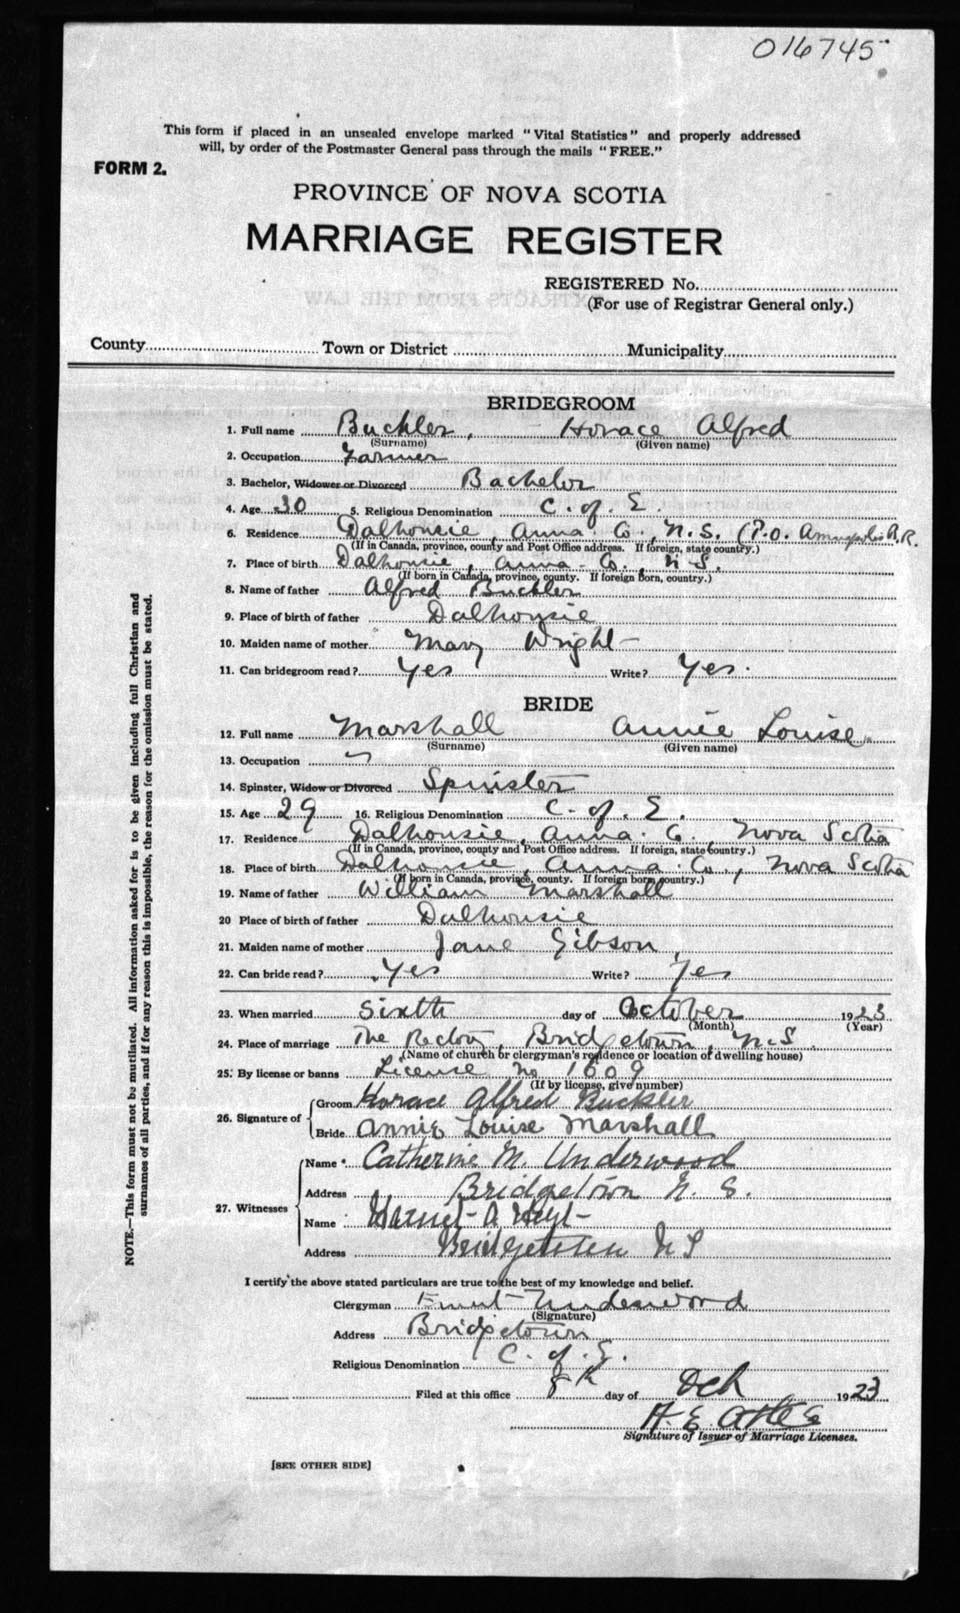 016745
This form if placed in an unsealed envelope marked "Vital Statistics" and properly addressed
will, by order of the Postmaster General pass through the mails "FREE."
FORM 2.
PROVINCE OF NOVA SCOTIA
MARRIAGE REGISTER
REGISTERED No.
(For use of Registrar General only.)
County Town or District Municipality
BRIDEGROOM
1. Full name Buckler, Horace Alfred
(Surname) (Given name)
2. Occupation Farmer
3. Bachelor, Widower or Divorced Bachelor
4. Age 30 5. Religious Denomination C. of E.
6. Residence Dalhousie, Anna. Co., N.S. (P.O. Annapolis R.R.
(If in Canada, province, county and Post Office address. If foreign, state country.)
7. Place of birth Dalhousie, Anna. Co. N.S.
(If born in Canada, province, county. If foreign born, country.)
8. Name of father Alfred Buckler
9. Place of birth of father Dalhousie
10. Maiden name of mother Mary Wright
11. Can bridegroom read? Yes Write? Yes.
BRIDE
12. Full name Marshall Annie Louise
(Surname) (Given name)
13. Occupation
14. Spinster, Widow or Divorced Spinster
15. Age 29 16. Religious Denomination C. of E.
17. Residence Dalhousie, Anna. Co. Nova Scotia
(If in Canada, province, county and Post Office address. If foreign, state country.)
18. Place of birth Dalhousie, Anna. Co., Nova Scotia
(If born in Canada, province, county. If foreign born, country.)
19. Name of father William Marshall
20 Place of birth of father Dalhousie
21. Maiden name of mother Jane Gibson
22. Can bride read? Yes Write? Yes
23. When married Sixth day of October 1923
(Month) (Year)
24. Place of marriage The Rectory, Bridgetown, N.S.
(Name of church or clergyman's residence or location of dwelling house)
25. By license or banns License no 1609
(If by license, give number)
26. Signature of Groom Horace Alfred Buckler
Bride Annie Louise Marshall
27. Witnesses Name Catherine M. Underwood
Address Bridgetown N. S.
Name Harriet A Hoyt
Address Bridgetown N S
I certify the above stated particulars are true to the best of my knowledge and belief.
Clergyman Ernest Underwood
(Signature)
Address Bridgetown
Religious Denomination C. of E.
Filed at this office 8th day of Oct 1923
H. E.
Signature of Issuer of Marriage Licenses.
[SEE OTHER SIDE]
NOTE.—This form must not be mutilated. All information asked for is to be given including full Christian and
surnames of all parties, and if for any reason this is impossible, the reason for the omission must be stated.